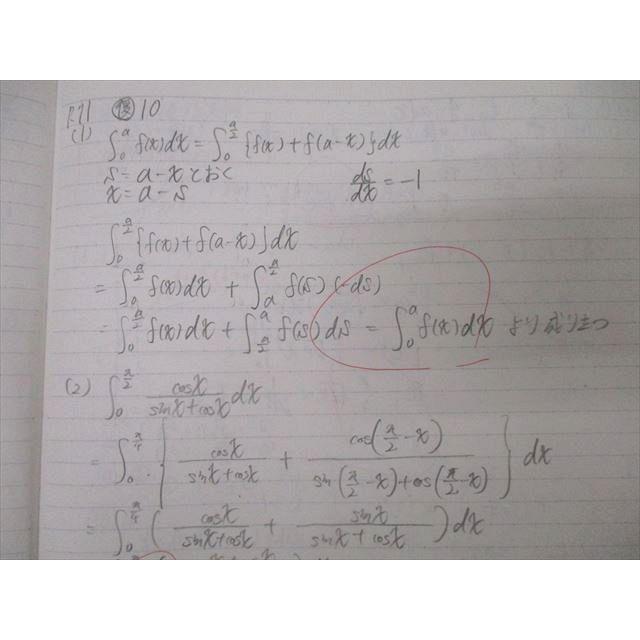 P.71 復10
(1) ∫₀^a f(x)dx = ∫₀^{a/2} {f(x) + f(a-x)}dx
s = a-x とおく ds/dx = -1
x = a-s
∫₀^{a/2} {f(x) + f(a-x)}dx
= ∫₀^{a/2} f(x)dx + ∫_a^{a/2} f(s)(-ds)
= ∫₀^{a/2} f(x)dx + ∫_{a/2}^a f(s)ds = ∫₀^a f(x)dx より成り立つ
(2) ∫₀^{π/2} cosx/(sinx+cosx) dx
= ∫₀^{π/4} { cosx/(sinx+cosx) + cos(π/2-x)/(sin(π/2-x)+cos(π/2-x)) } dx
= ∫₀^{π/4} ( cosx/(sinx+cosx) + sinx/(sinx+cosx) )dx